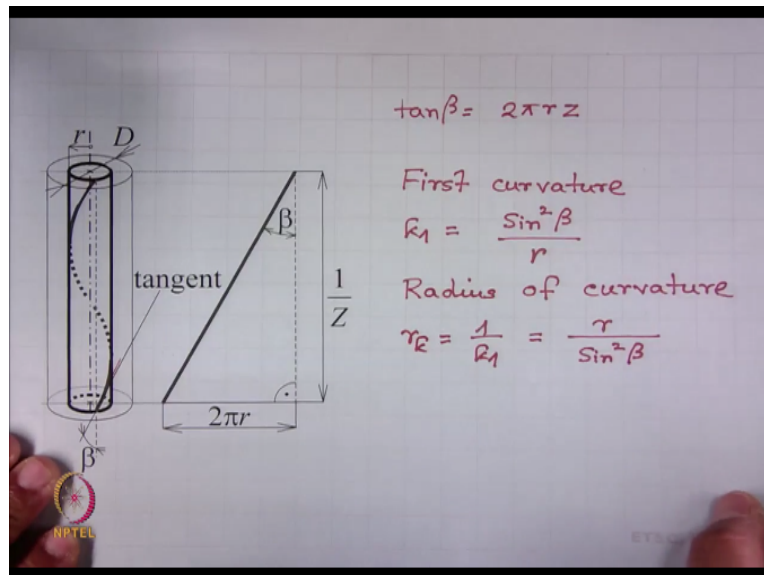 r
D
tangent
β
β
1
Z
2πr
tanβ = 2πrZ
First curvature
k₁ = Sin²β / r
Radius of curvature
r_k = 1 / k₁ = r / Sin²β
NPTEL